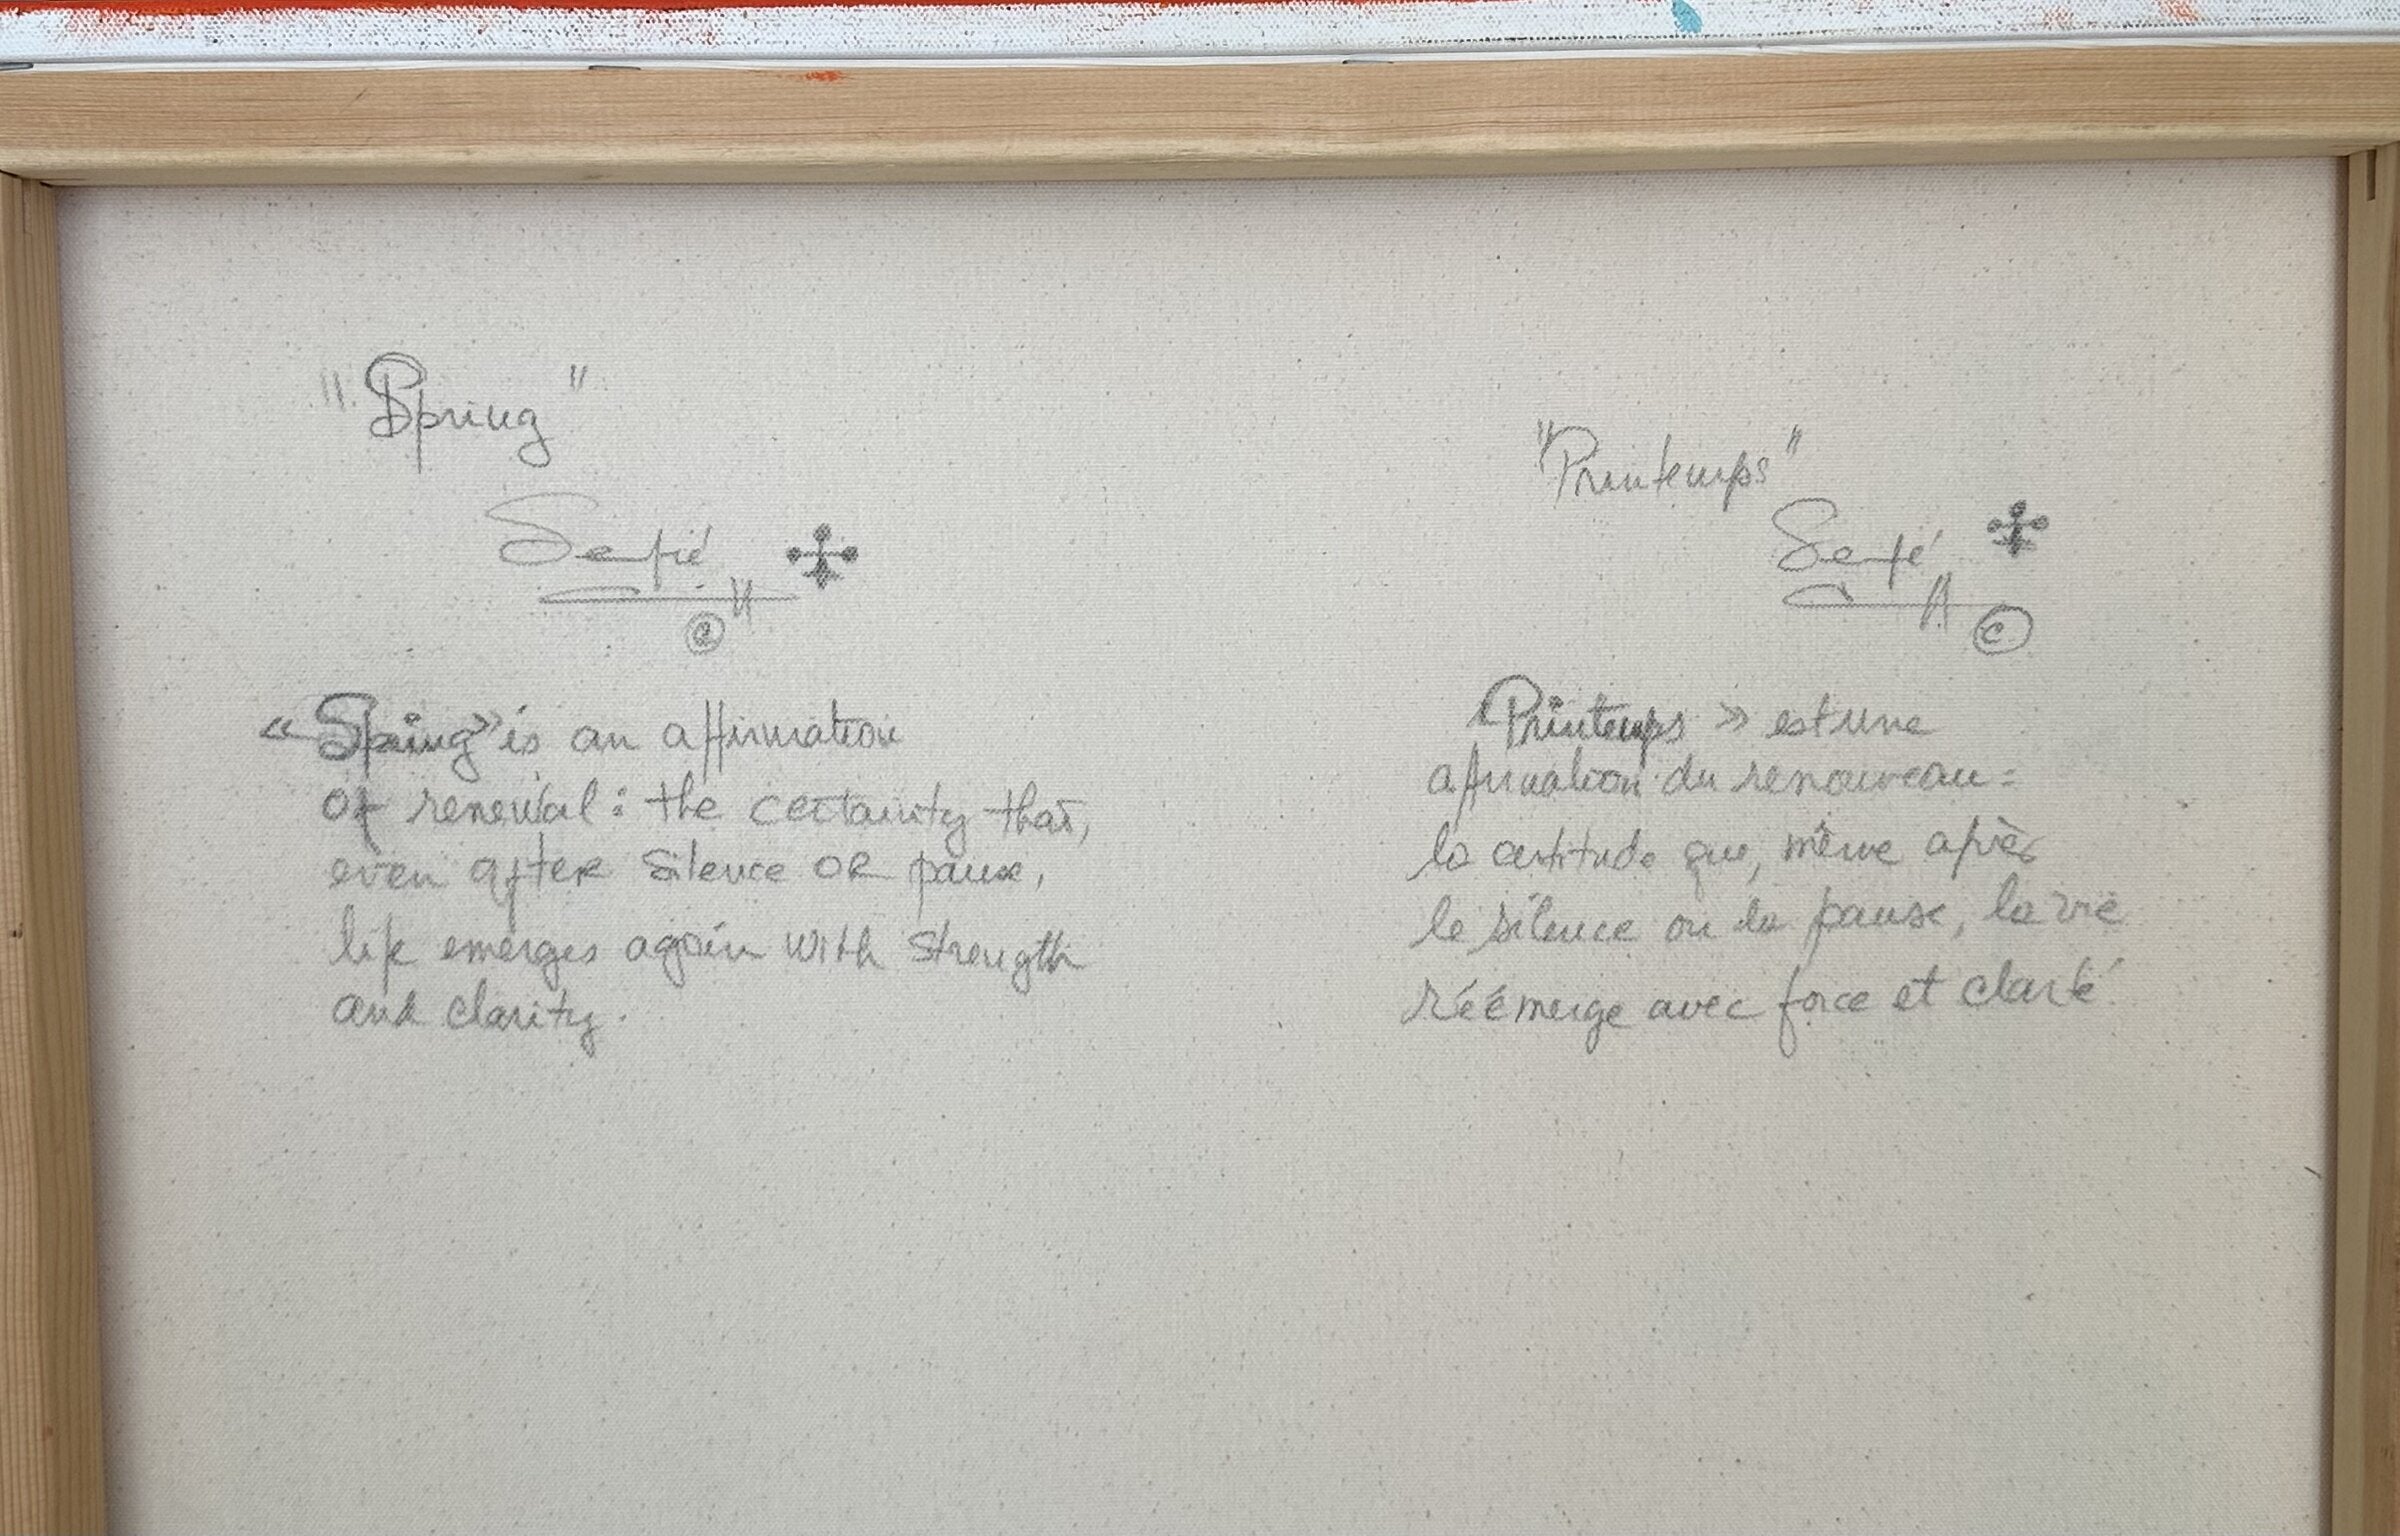 "Spring"
Sefié
©
«Spring» is an affirmation
of renewal: the certainty that,
even after silence or pause,
life emerges again with strength
and clarity.
"Printemps"
Sefié
©
Printemps » est une
affirmation du renouveau:
la certitude que, même après
le silence ou la pause, la vie
réémerge avec force et clarté